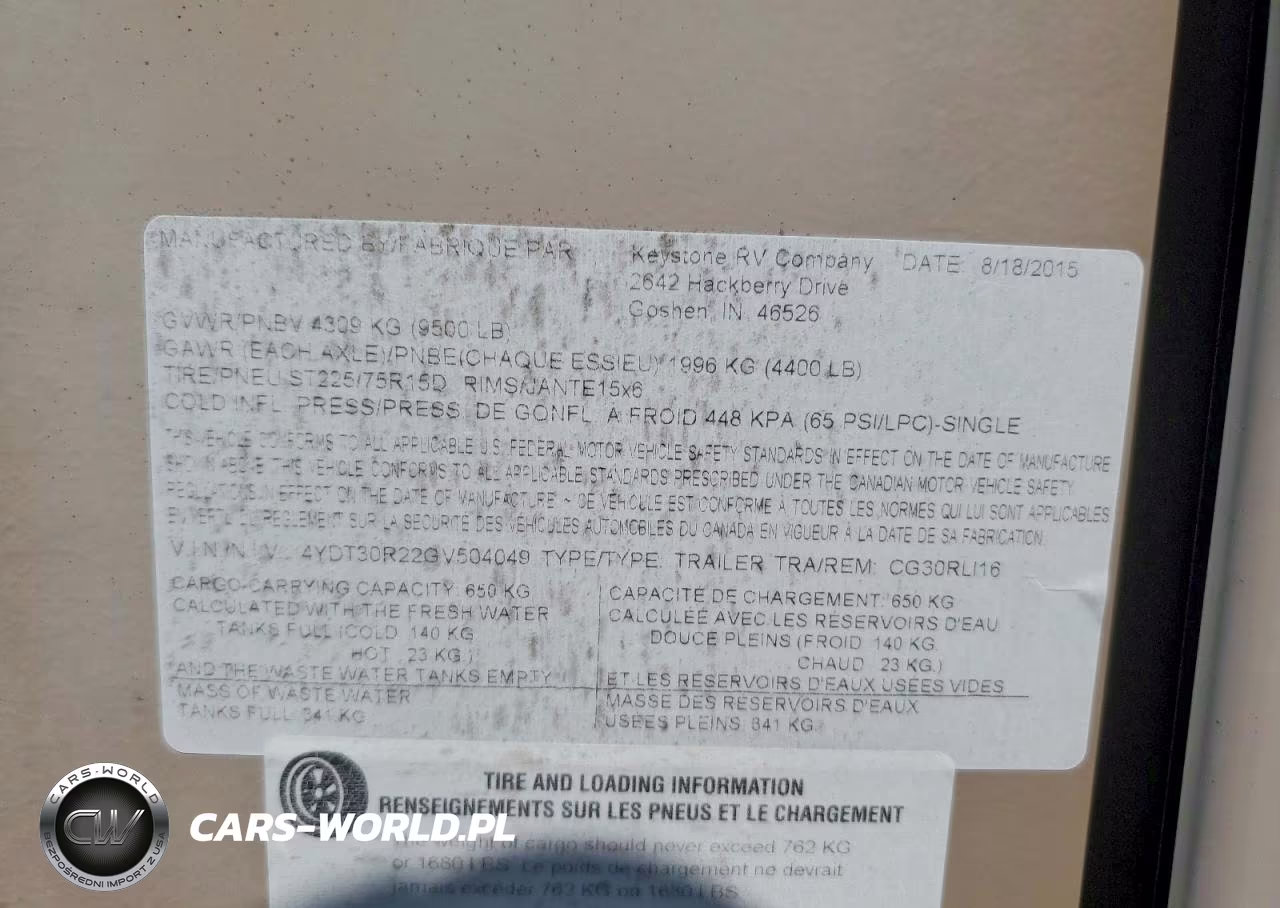 MANUFACTURED BY/FABRIQUE PAR Keystone RV Company DATE: 8/18/2015
2642 Hackberry Drive
Goshen, IN 46526
GVWR/PNBV 4309 KG (9500 LB)
GAWR (EACH AXLE)/PNBE(CHAQUE ESSIEU) 1996 KG (4400 LB)
TIRE/PNEU ST225/75R15D RIMS/JANTE15x6
COLD INFL. PRESS/PRESS. DE GONFL. A FROID 448 KPA (65 PSI/LPC)-SINGLE
THIS VEHICLE CONFORMS TO ALL APPLICABLE U.S. FEDERAL MOTOR VEHICLE SAFETY STANDARDS IN EFFECT ON THE DATE OF MANUFACTURE
SHOWN ABOVE THIS VEHICLE CONFORMS TO ALL APPLICABLE STANDARDS PRESCRIBED UNDER THE CANADIAN MOTOR VEHICLE SAFETY
REGULATIONS IN EFFECT ON THE DATE OF MANUFACTURE ~ CE VÉHICULE EST CONFORME À TOUTES LES NORMES QUI LUI SONT APPLICABLES
EN VERTU DU RÈGLEMENT SUR LA SÉCURITÉ DES VÉHICULES AUTOMOBILES DU CANADA EN VIGUEUR À LA DATE DE SA FABRICATION.
V.I.N./N.I.V.: 4YDT30R22GV504049 TYPE/TYPE: TRAILER TRA/REM: CG30RLI16
CARGO-CARRYING CAPACITY: 650 KG
CALCULATED WITH THE FRESH WATER
TANKS FULL (COLD 140 KG
HOT 23 KG.)
AND THE WASTE WATER TANKS EMPTY
MASS OF WASTE WATER
TANKS FULL: 341 KG
CAPACITÉ DE CHARGEMENT: 650 KG
CALCULÉE AVEC LES RÉSERVOIRS D'EAU
DOUCE PLEINS (FROID 140 KG.
CHAUD 23 KG.)
ET LES RÉSERVOIRS D'EAUX USÉES VIDES
MASSE DES RÉSERVOIRS D'EAUX
USÉES PLEINS: 341 KG.
TIRE AND LOADING INFORMATION
RENSEIGNEMENTS SUR LES PNEUS ET LE CHARGEMENT
The weight of cargo should never exceed 762 KG
or 1680 LBS. Le poids de chargement ne devrait
jamais excéder 762 KG ou 1680 LBS
CARS-WORLD
CW
BEZPOŚREDNI IMPORT Z USA
CARS-WORLD.PL